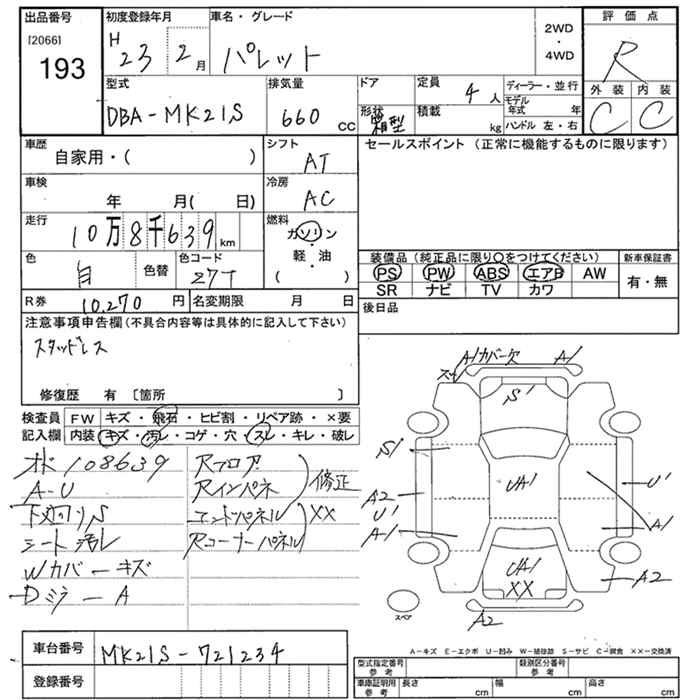 出品番号
[2066]
193
初度登録年月
H 23 2月
車名・グレード
パレット
2WD
・
4WD
評価点
R
外装 内装
C C
型式
DBA-MK21S
排気量
660 CC
ドア
形状
箱型
定員
4人
積載
kg
ディーラー・並行
モデル年式 年
ハンドル 左・右
車歴
自家用・( )
シフト
AT
セールスポイント (正常に機能するものに限ります)
車検
年 月( 日)
冷房
AC
走行
10万8千639km
燃料
ガソリン
・
軽油
・
( )
色
白
色替
色コード
Z7T
装備品 (純正品に限り○をつけてください)
PS PW ABS エアB AW
SR ナビ TV カワ
新車保証書
有・無
R券
10,270 円
名変期限 月 日
後日品
注意事項申告欄 (不具合内容等は具体的に記入して下さい)
スタッドレス
修復歴 有 〔箇所 〕
検査員
記入欄
FW キズ・飛石・ヒビ割・リペア跡・×要
内装 キズ・汚レ・コゲ・穴・スレ・キレ・破レ
オド108639
A-U
下廻りS
シート汚レ
Wカバーキズ
Dミラ-A
Rフロア
Rインパネ
エンドパネル
Rコーナーパネル
修正
XX
A1カバー欠
A1
S1
S1
UA1
A2
U1
A-1
U1
A1
UA1
XX
A2
A2
スペア
A-キズ E-エクボ U-凹み W-補修跡 S-サビ C-腐食 XX-交換済
車台番号
MK21S-721234
登録番号
型式指定番号
参考
類別区分番号
参考
車庫証明用
参考
長さ cm
幅 cm
高さ cm